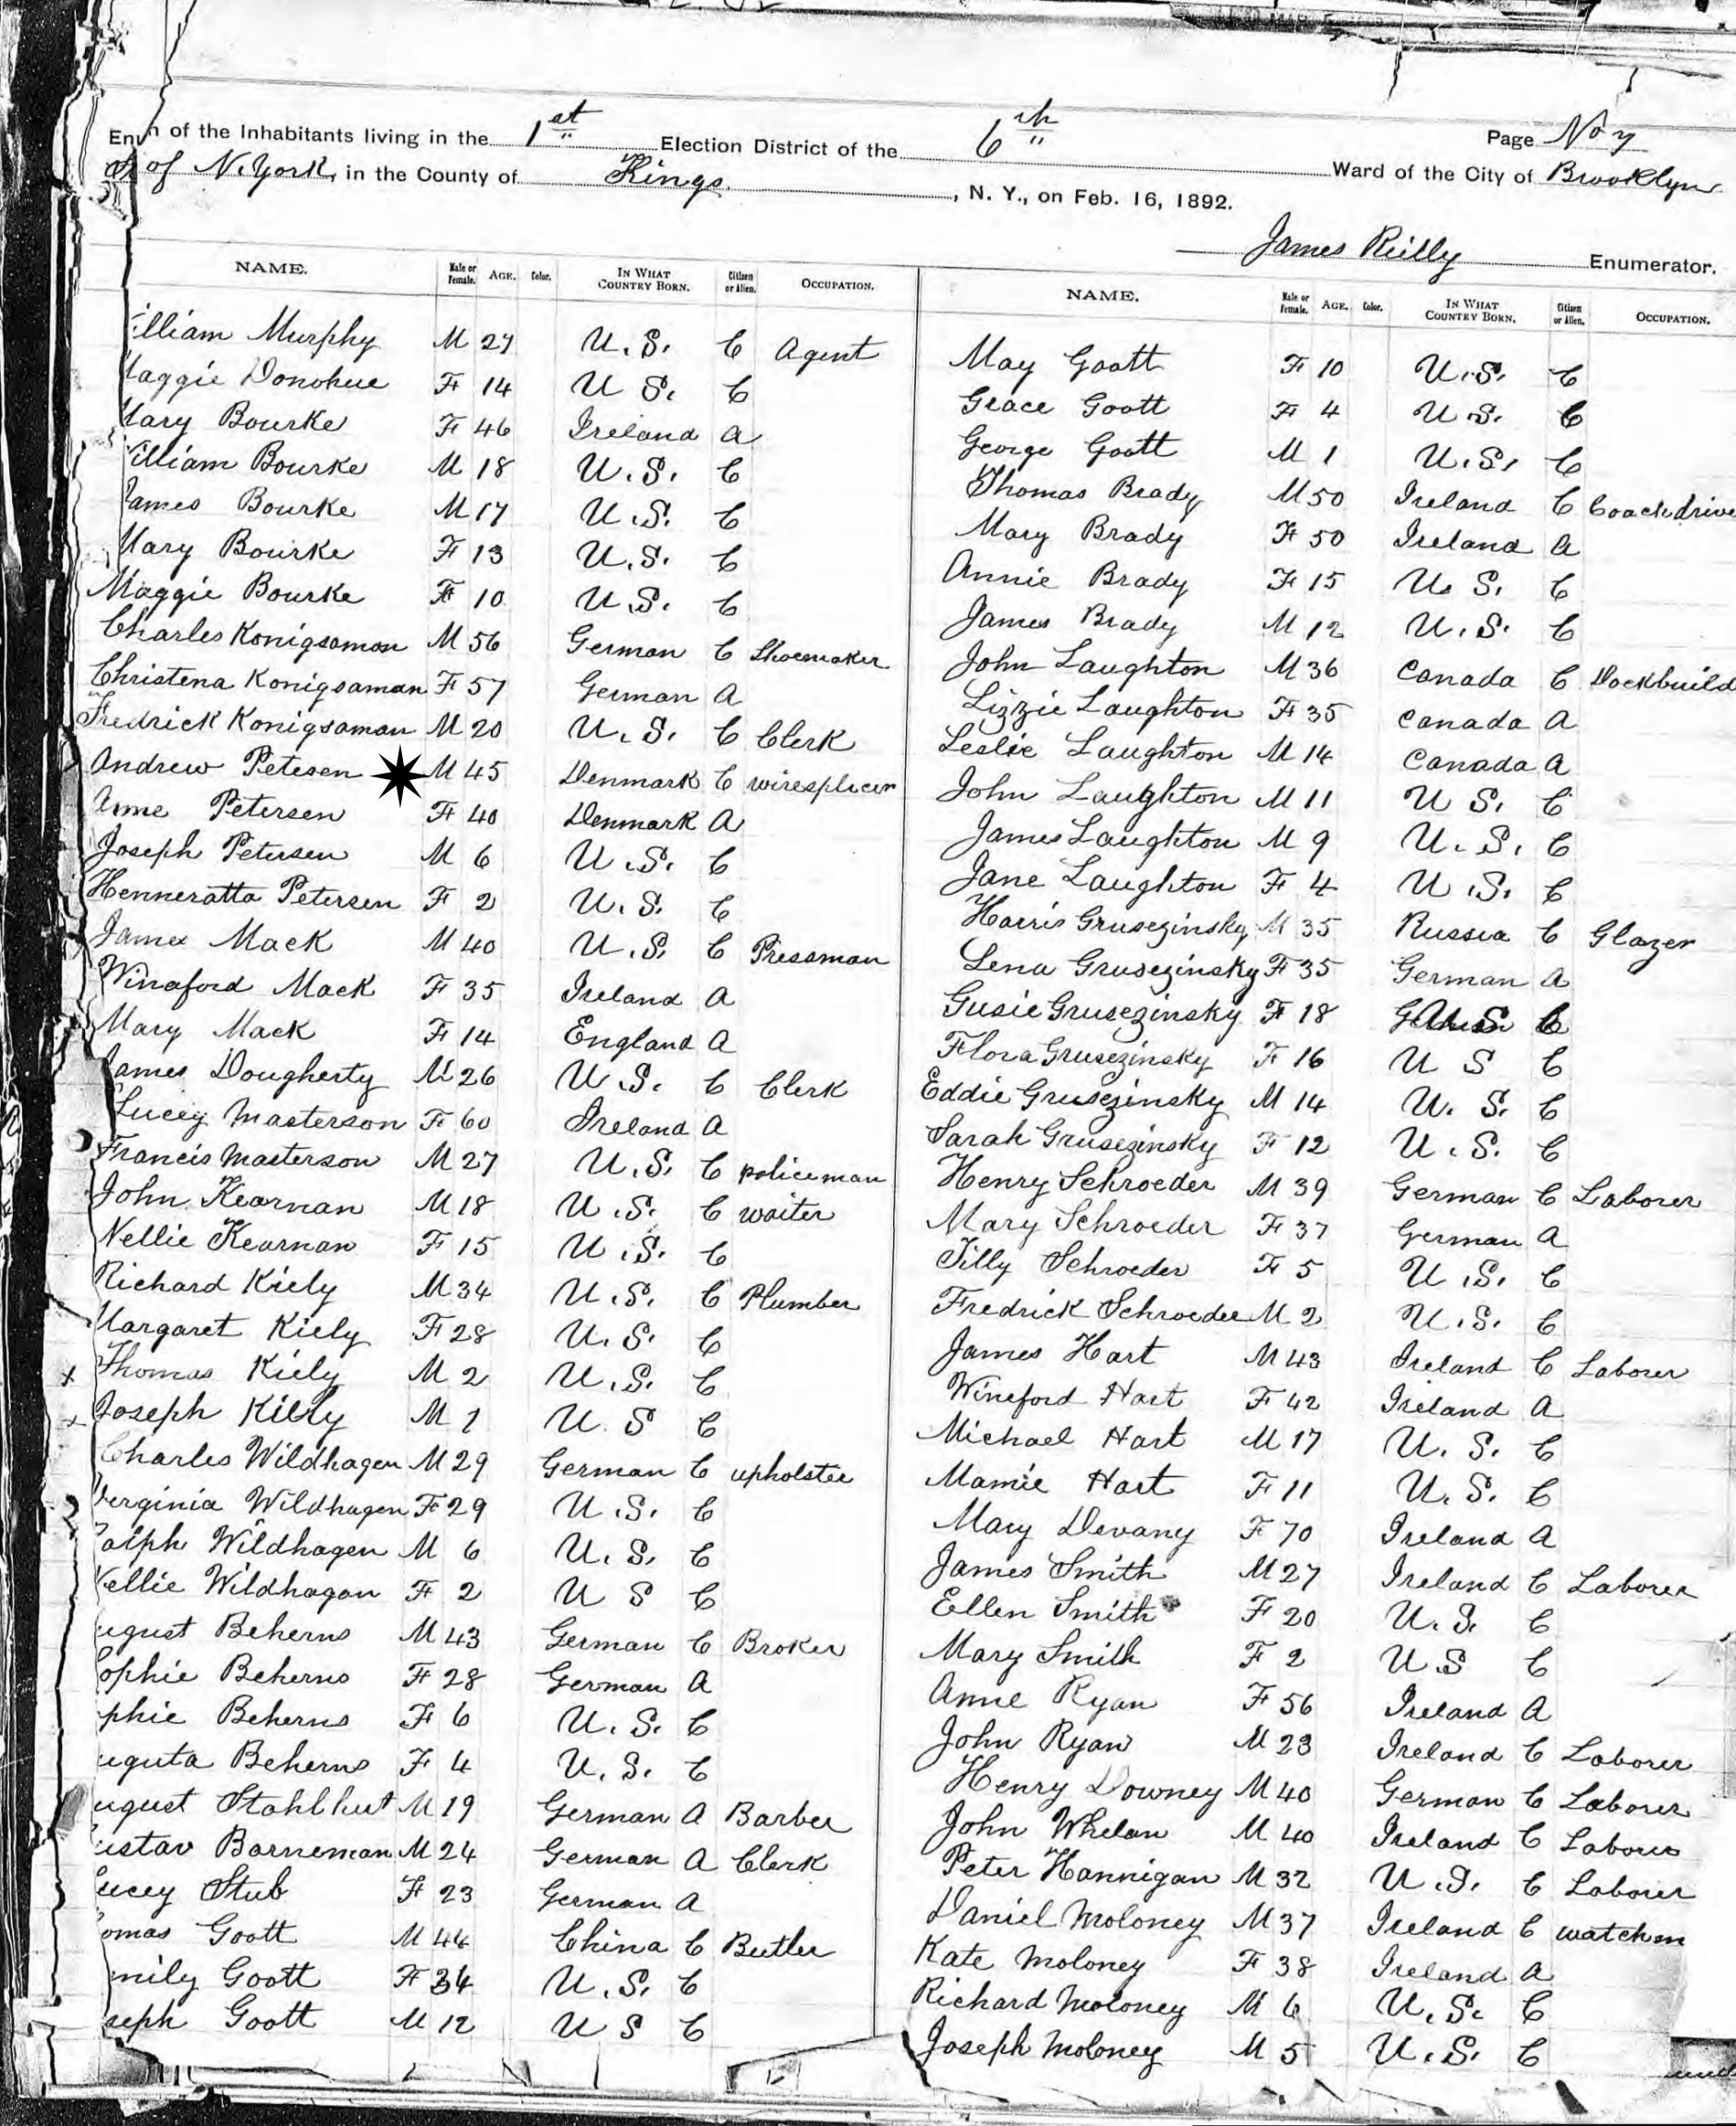 En of the Inhabitants living in the 1st Election District of the 6th Ward of the City of Brooklyn
of N. York, in the County of Kings, N. Y., on Feb. 16, 1892.
Page No 7
James Reilly Enumerator.
NAME. Male or Female. AGE. Color. IN WHAT COUNTRY BORN. Citizen or Alien. OCCUPATION.
illiam Murphy M 27 U.S. C Agent
Maggie Donohue F 14 U S. C
Mary Bourke F 46 Ireland A
William Bourke M 18 U.S. C
James Bourke M 17 U.S. C
Mary Bourke F 13 U.S. C
Maggie Bourke F 10 U.S. C
Charles Konigsamon M 56 German C Shoemaker
Christena Konigsaman F 57 German A
Fredrick Konigsaman M 20 U.S. C Clerk
Andrew Petesen M 45 Denmark C wiresplicer
Anne Petersen F 40 Denmark A
Joseph Petersen M 6 U.S. C
Henneratta Petersen F 2 U.S. C
James Mack M 40 U.S. C Pressman
Winaford Mack F 35 Ireland A
Mary Mack F 14 England A
James Dougherty M 26 U.S. C Clerk
Lucey Masterson F 60 Ireland A
Francis Masterson M 27 U.S. C policeman
John Kearnan M 18 U.S. C waiter
Nellie Kearnan F 15 U.S. C
Richard Kiely M 34 U.S. C Plumber
Margaret Kiely F 28 U.S. C
x Thomas Kiely M 2 U.S. C
x Joseph Kiely M 1 U.S C
Charles Wildhagen M 29 German C upholster
Verginia Wildhagen F 29 U.S. C
alph Wildhagen M 6 U.S. C
Nellie Wildhagan F 2 U S C
ugust Beherns M 43 German C Broker
ophie Beherns F 28 German A
phie Beherns F 6 U.S. C
uguta Beherns F 4 U.S. C
ugust Stahlhut M 19 German A Barber
ustav Barneman M 24 German A Clerk
ucey Stub F 23 German A
omas Goott M 44 China C Butler
mily Goott F 34 U.S. C
seph Goott M 12 U S C
NAME. Male or Female. AGE. Color. IN WHAT COUNTRY BORN. Citizen or Alien. OCCUPATION.
May Goott F 10 U.S. C
Grace Goott F 4 U.S. C
George Goott M 1 U.S. C
Thomas Brady M 50 Ireland C Coachdrive
Mary Brady F 50 Ireland A
Annie Brady F 15 U.S. C
James Brady M 12 U.S. C
John Laughton M 36 Canada C Dockbuild
Lizzie Laughton F 35 Canada A
Leslie Laughton M 14 Canada A
John Laughton M 11 U S. C
James Laughton M 9 U.S. C
Jane Laughton F 4 U.S. C
Harris Grusezinsky M 35 Russia C Glazer
Lena Grusezinsky F 35 German A
Gusie Grusezinsky F 18 U S C
Flora Grusezinsky F 16 U S C
Eddie Grusezinsky M 14 U.S. C
Sarah Grusezinsky F 12 U.S. C
Henry Schroeder M 39 German C Laborer
Mary Schroeder F 37 German A
Tilly Schroeder F 5 U.S. C
Fredrick Schroeder M 2 U.S. C
James Hart M 43 Ireland C Laborer
Wineford Hart F 42 Ireland A
Michael Hart M 17 U.S. C
Mamie Hart F 11 U.S. C
Mary Devany F 70 Ireland A
James Smith M 27 Ireland C Laborer
Ellen Smith F 20 U.S. C
Mary Smith F 2 U.S C
Anne Ryan F 56 Ireland A
John Ryan M 23 Ireland C Laborer
Henry Downey M 40 German C Laborer
John Whelan M 40 Ireland C Laborer
Peter Hannigan M 32 U.S. C Laborer
Daniel Moloney M 37 Ireland C watchm
Kate Moloney F 38 Ireland A
Richard Moloney M 6 U.S. C
Joseph Moloney M 5 U.S. C